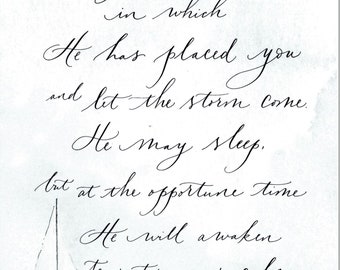 in which
He has placed you
and let the storm come.
He may sleep,
but at the opportune time
He will awaken